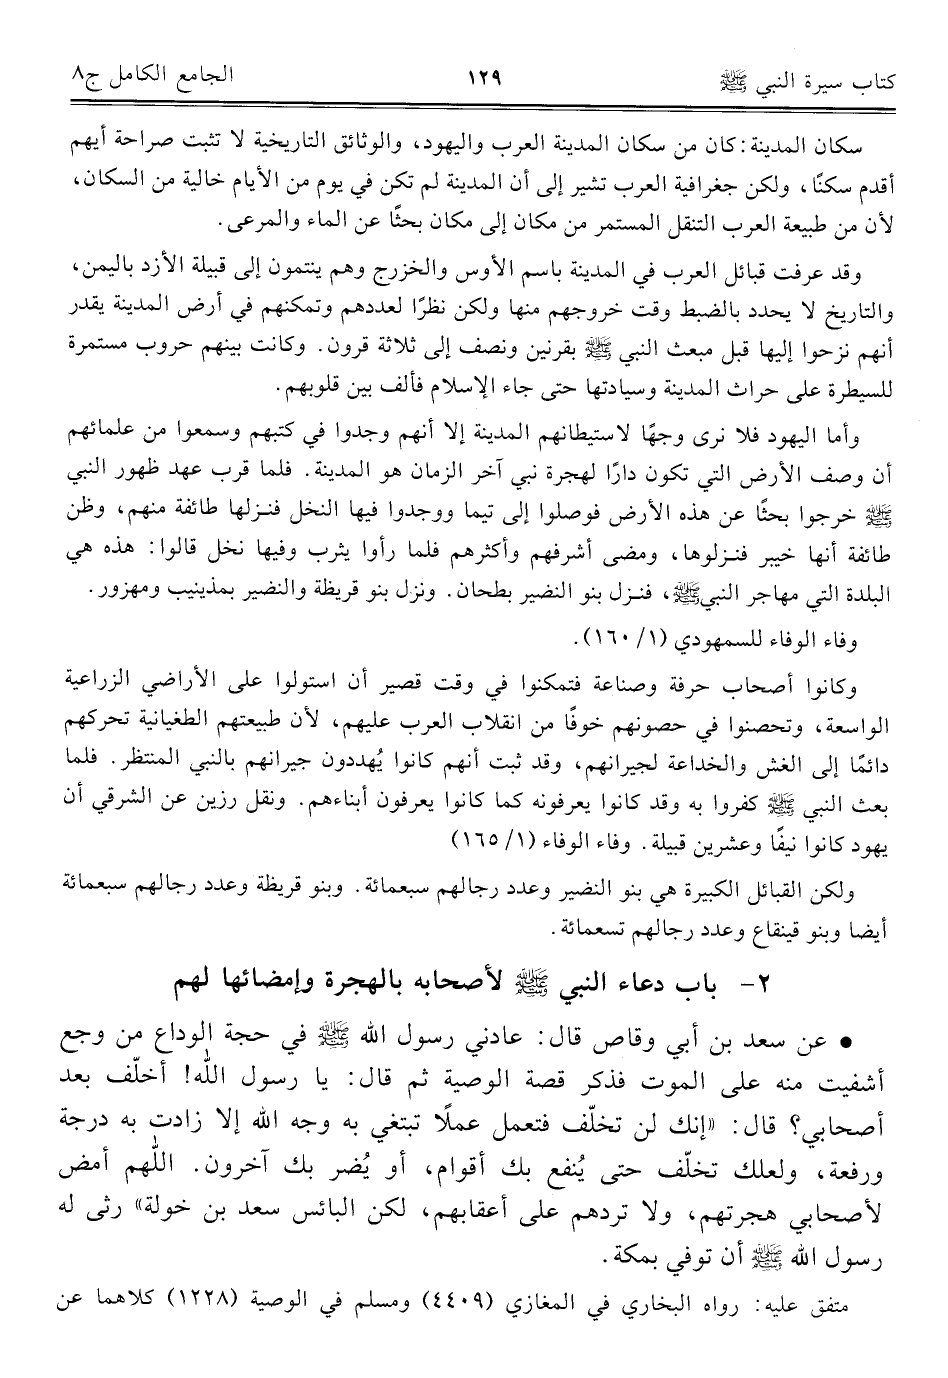 كتاب سيرة النبي ﷺ ١٢٩ الجامع الكامل ج٨
سكان المدينة: كان من سكان المدينة العرب واليهود، والوثائق التاريخية لا تثبت صراحة أيهم
أقدم سكنًا، ولكن جغرافية العرب تشير إلى أن المدينة لم تكن في يوم من الأيام خالية من السكان،
لأن من طبيعة العرب التنقل المستمر من مكان إلى مكان بحثًا عن الماء والمرعى.
وقد عرفت قبائل العرب في المدينة باسم الأوس والخزرج وهم ينتمون إلى قبيلة الأزد باليمن،
والتاريخ لا يحدد بالضبط وقت خروجهم منها ولكن نظرًا لعددهم وتمكنهم في أرض المدينة يقدر
أنهم نزحوا إليها قبل مبعث النبي ﷺ بقرنين ونصف إلى ثلاثة قرون. وكانت بينهم حروب مستمرة
للسيطرة على حراث المدينة وسيادتها حتى جاء الإسلام فألف بين قلوبهم.
وأما اليهود فلا نرى وجهًا لاستيطانهم المدينة إلا أنهم وجدوا في كتبهم وسمعوا من علمائهم
أن وصف الأرض التي تكون دارًا لهجرة نبي آخر الزمان هو المدينة. فلما قرب عهد ظهور النبي
ﷺ خرجوا بحثًا عن هذه الأرض فوصلوا إلى تيما ووجدوا فيها النخل فنـزلها طائفة منهم، وظن
طائفة أنها خيبر فنـزلوها، ومضى أشرفهم وأكثرهم فلما رأوا يثرب وفيها نخل قالوا: هذه هي
البلدة التي مهاجر النبي ﷺ، فنـزل بنو النضير بطحان. ونزل بنو قريظة والنضير بمذينيب ومهزور.
وفاء الوفاء للسمهودي (١/ ١٦٠).
وكانوا أصحاب حرفة وصناعة فتمكنوا في وقت قصير أن استولوا على الأراضي الزراعية
الواسعة، وتحصنوا في حصونهم خوفًا من انقلاب العرب عليهم، لأن طبيعتهم الطغيانية تحركهم
دائمًا إلى الغش والخداعة لجيرانهم، وقد ثبت أنهم كانوا يُهددون جيرانهم بالنبي المنتظر. فلما
بعث النبي ﷺ كفروا به وقد كانوا يعرفونه كما كانوا يعرفون أبناءهم. ونقل رزين عن الشرقي أن
يهود كانوا نيفًا وعشرين قبيلة. وفاء الوفاء (١/ ١٦٥)
ولكن القبائل الكبيرة هي بنو النضير وعدد رجالهم سبعمائة. وبنو قريظة وعدد رجالهم سبعمائة
أيضا وبنو قينقاع وعدد رجالهم تسعمائة.
٢- باب دعاء النبي ﷺ لأصحابه بالهجرة وإمضائها لهم
• عن سعد بن أبي وقاص قال: عادني رسول الله ﷺ في حجة الوداع من وجع
أشفيت منه على الموت فذكر قصة الوصية ثم قال: يا رسول الله! أخلّف بعد
أصحابي؟ قال: «إنك لن تخلّف فتعمل عملًا تبتغي به وجه الله إلا زادت به درجة
ورفعة، ولعلك تخلّف حتى يُنفع بك أقوام، أو يُضر بك آخرون. اللّهم أمض
لأصحابي هجرتهم، ولا تردهم على أعقابهم، لكن البائس سعد بن خولة» رثى له
رسول الله ﷺ أن توفي بمكة.
متفق عليه: رواه البخاري في المغازي (٤٤٠٩) ومسلم في الوصية (١٢٢٨) كلاهما عن